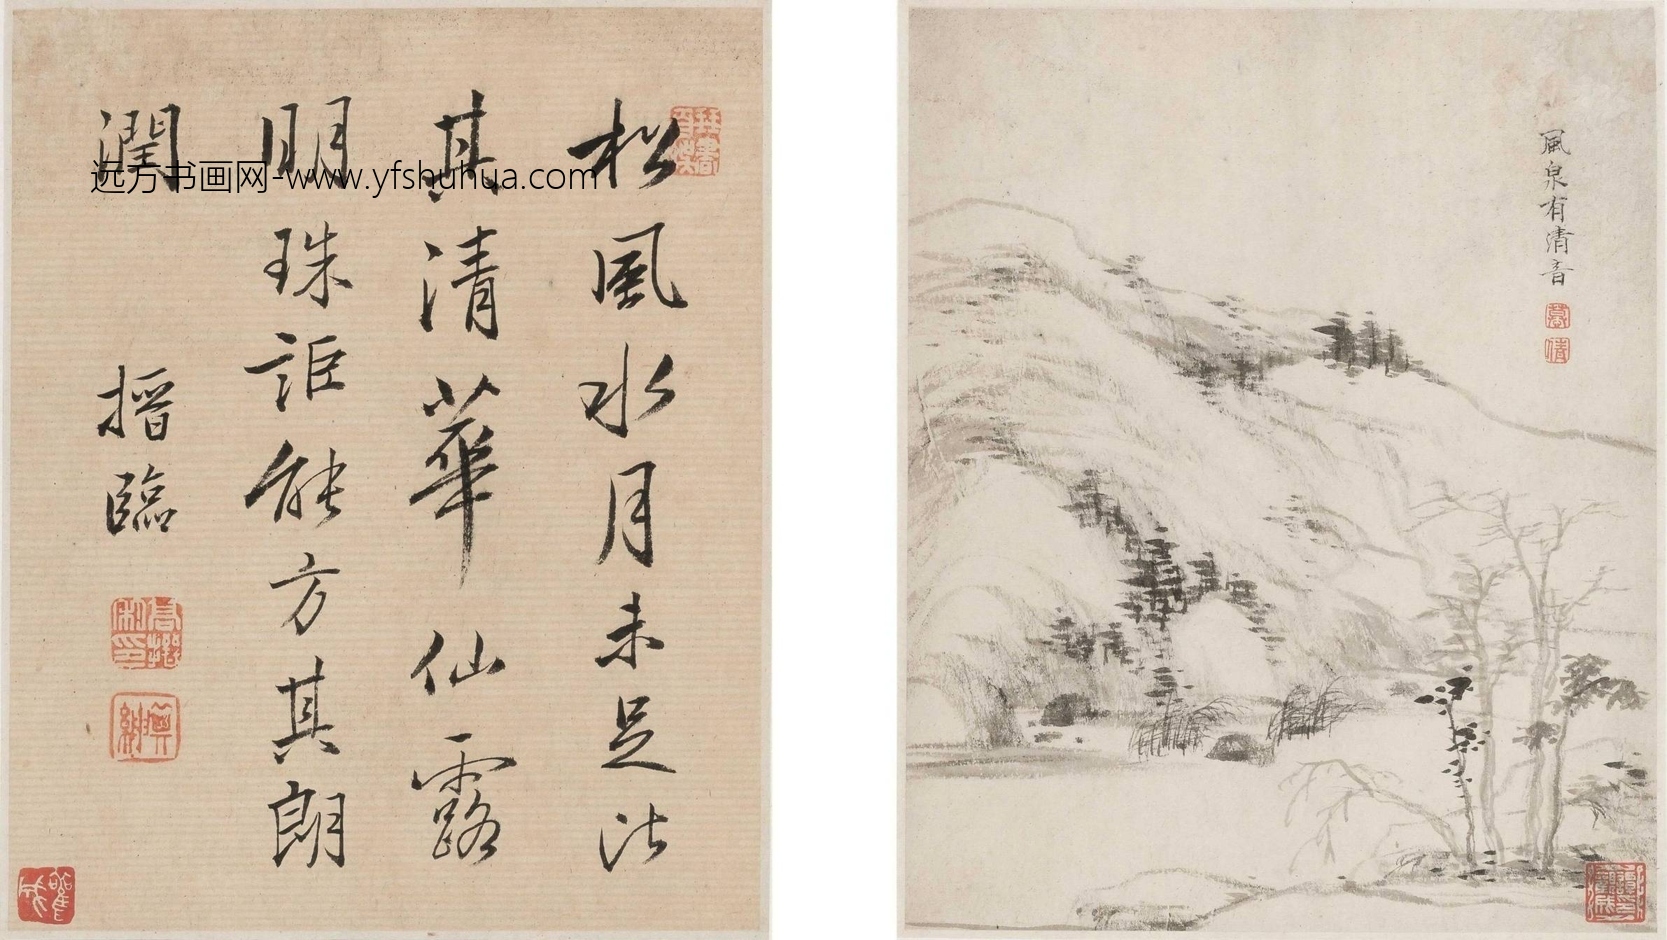 松風水月未足比
其清華仙露
明珠詎能方其朗
潤
搢臨
远方书画网-www.yfshuhua.com
風泉有清音